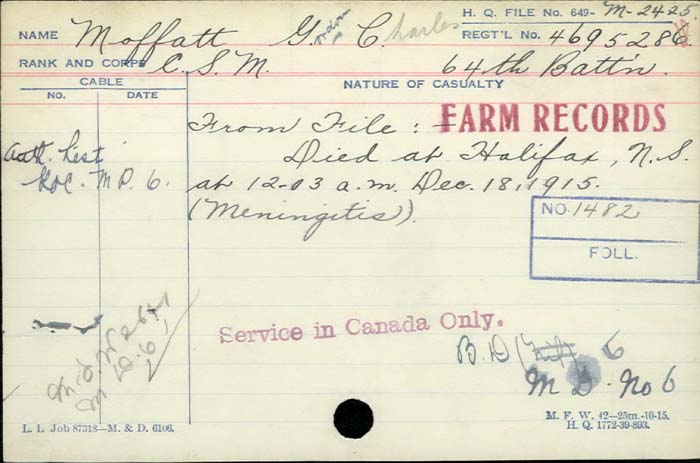 H. Q. FILE NO. 649- M-2425
NAME Moffatt Gordon Charles REGT'L NO. 469528
RANK AND CORPS C. S. M. 64th Batt'n.
CABLE NATURE OF CASUALTY
NO. DATE
From File: FARM RECORDS
Died at Halifax, N.S.
Auth. List
M D. 6. at 12-03 a.m. Dec. 18, 1915.
(Meningitis).
NO. 1482
FOLL.
Service in Canada Only.
B. D 6
M D. No 6
M. D. 6,
L. L Job 87318—M. & D. 6106.
M. F. W. 42—25m.-10-15.
H. Q. 1772-39-893.